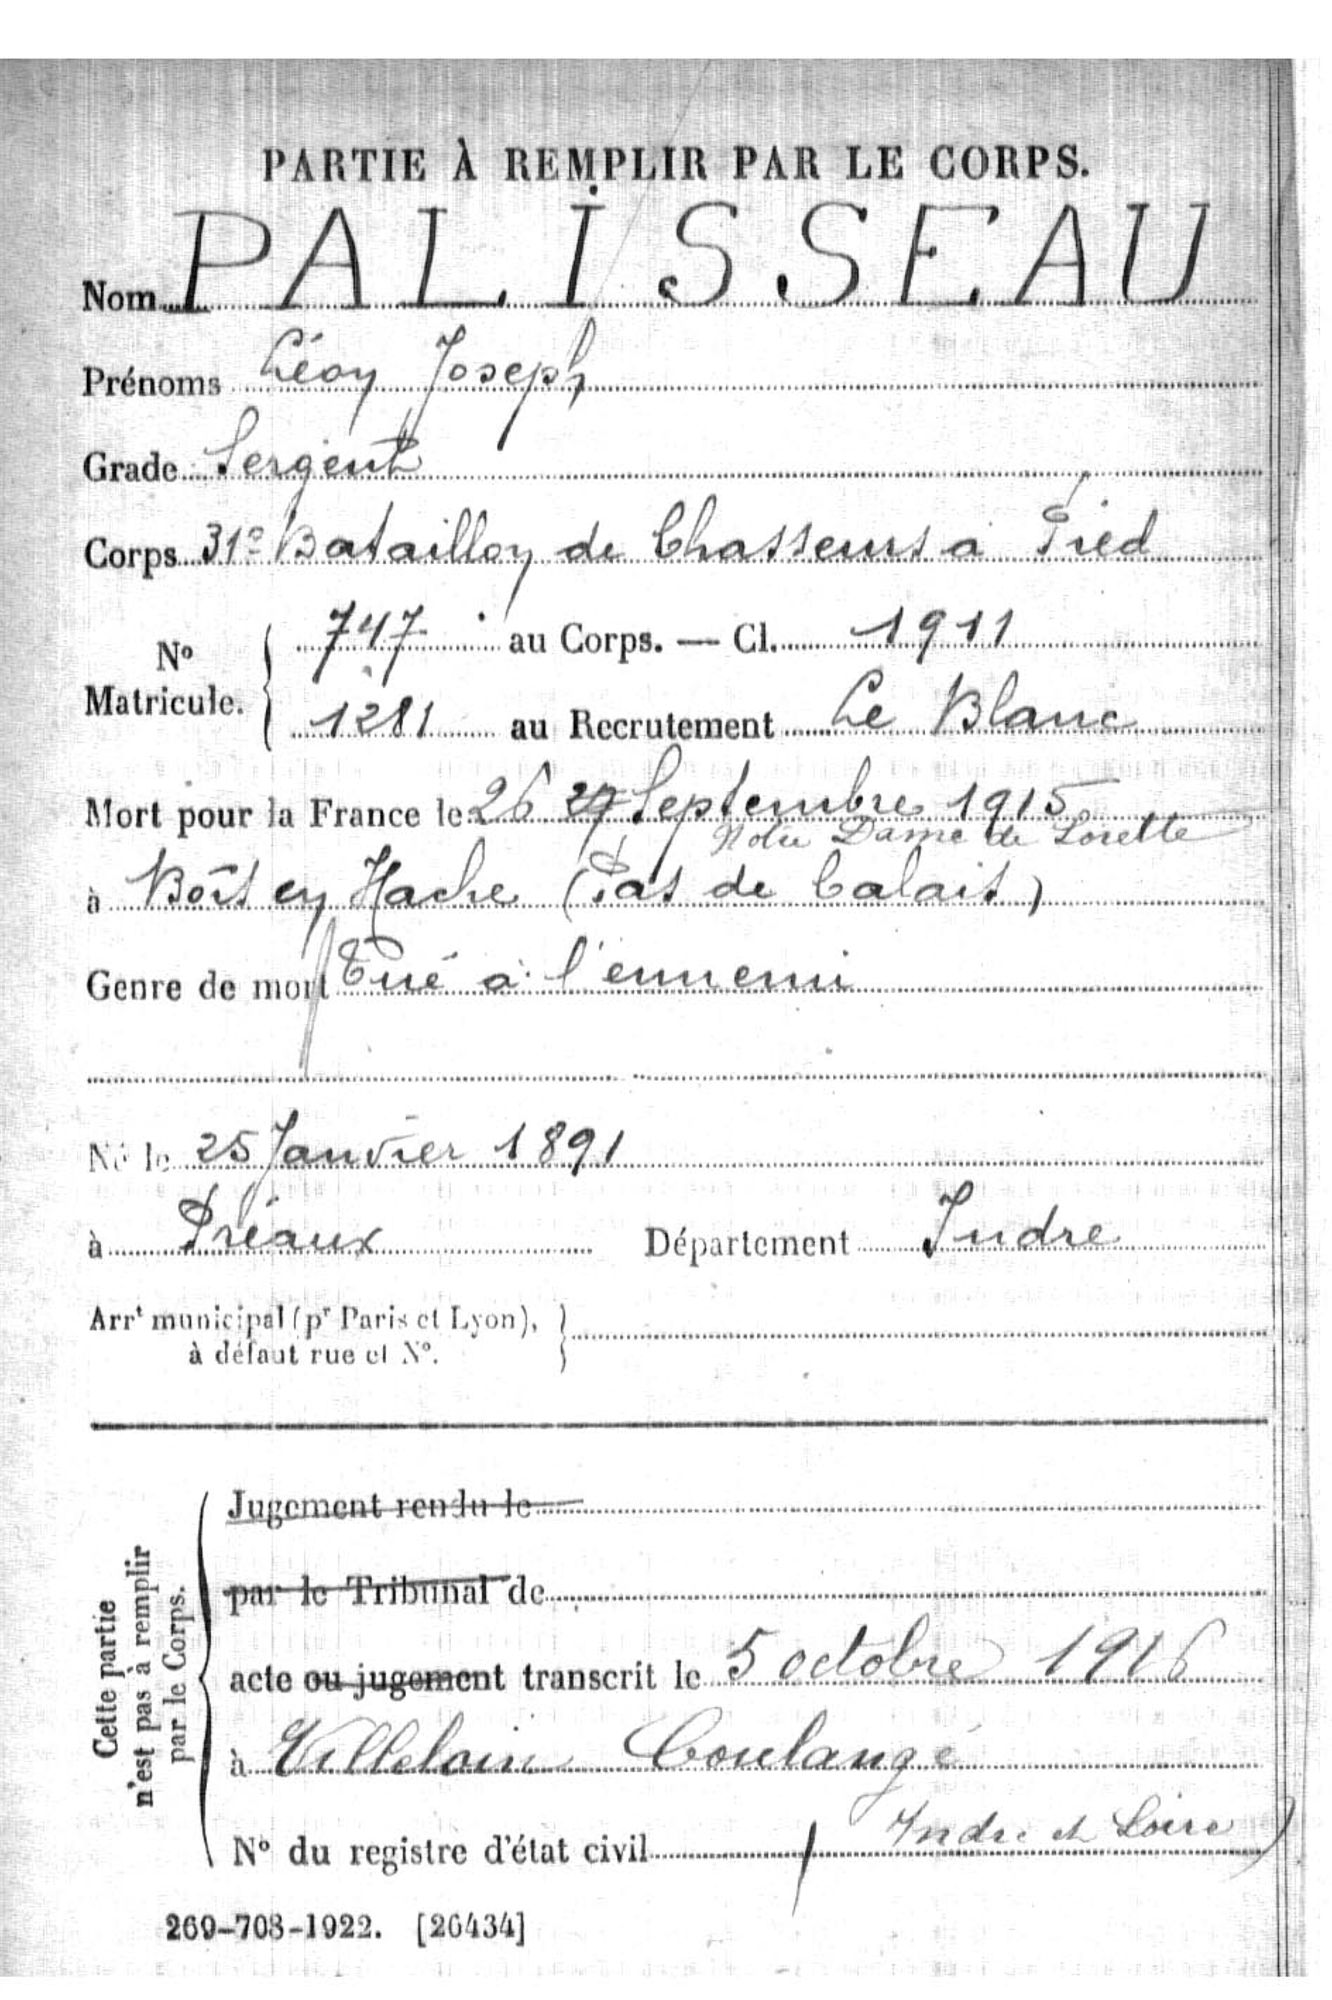 PARTIE À REMPLIR PAR LE CORPS.
Nom PALISSEAU
Prénoms Léon Joseph
Grade Sergent
Corps 31e Bataillon de Chasseurs à Pied
No Matricule. { 747 au Corps. — Cl. 1911
1281 au Recrutement Le Blanc
Mort pour la France le 26 27 Septembre 1915
Notre Dame de Lorette
à Bois en Hache (Pas de Calais)
Genre de mort Tué à l'ennemi
Né le 25 Janvier 1891
à Préaux Département Indre
Arrt municipal (pr Paris et Lyon), }
à défaut rue et No.
Cette partie
n'est pas à remplir
par le Corps.
Jugement rendu le
par le Tribunal de
acte ou jugement transcrit le 5 octobre 1916
à Villeloin Coulangé
No du registre d'état civil ( Indre et Loire )
269-708-1922. [26434]